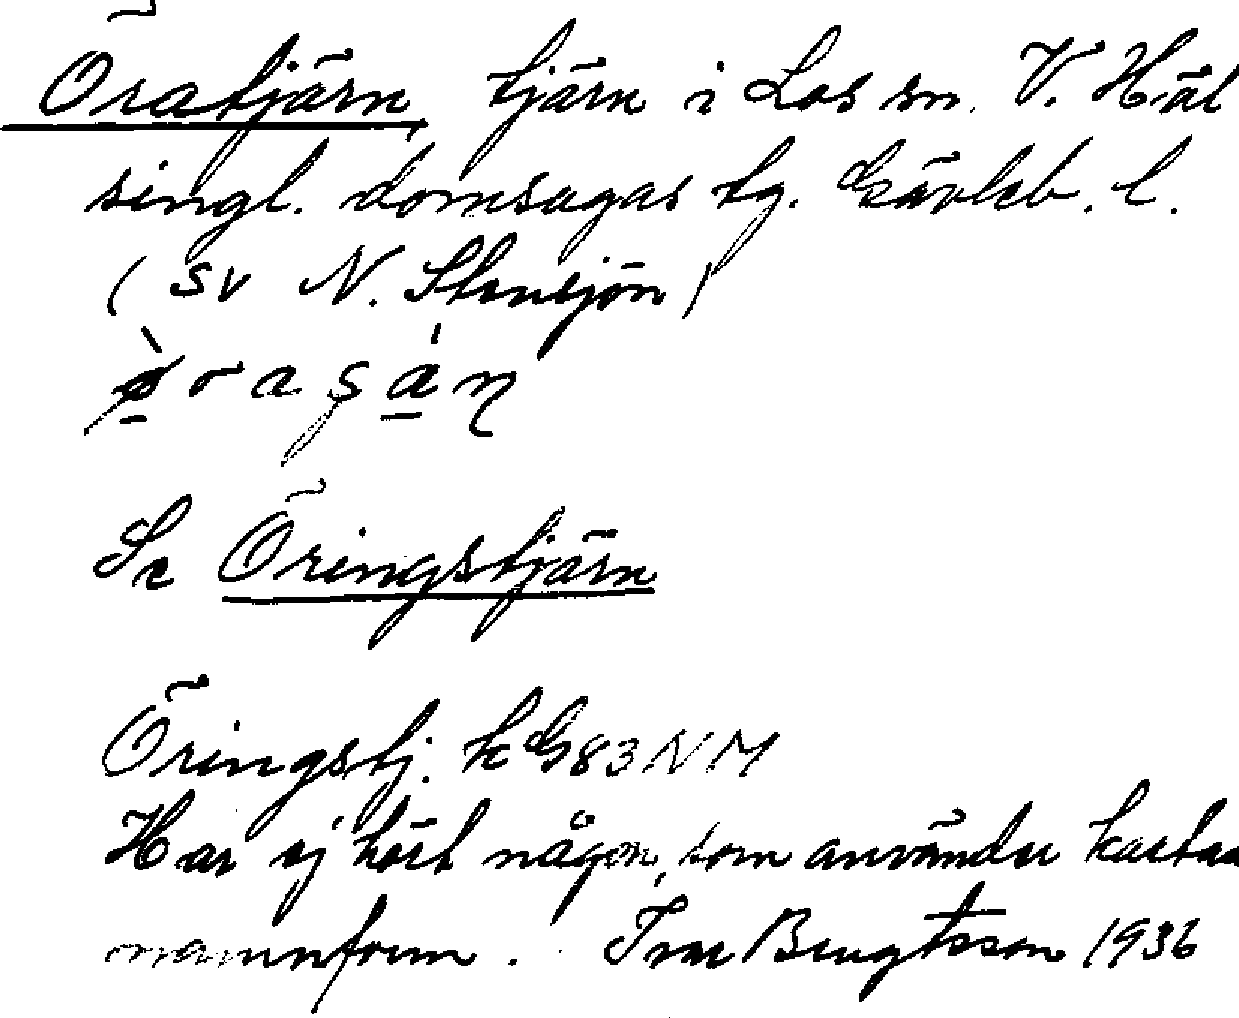 Öratjärn, tjärn i Los sn. V. Häl
singl. domsagas tg. Gävleb. l.
(SV N. Stensjön)
Se Öringstjärn
Öringstj. k G83NM
Har ej hört någon, som använder kartans
namnform. Ivar Bengtsson 1936